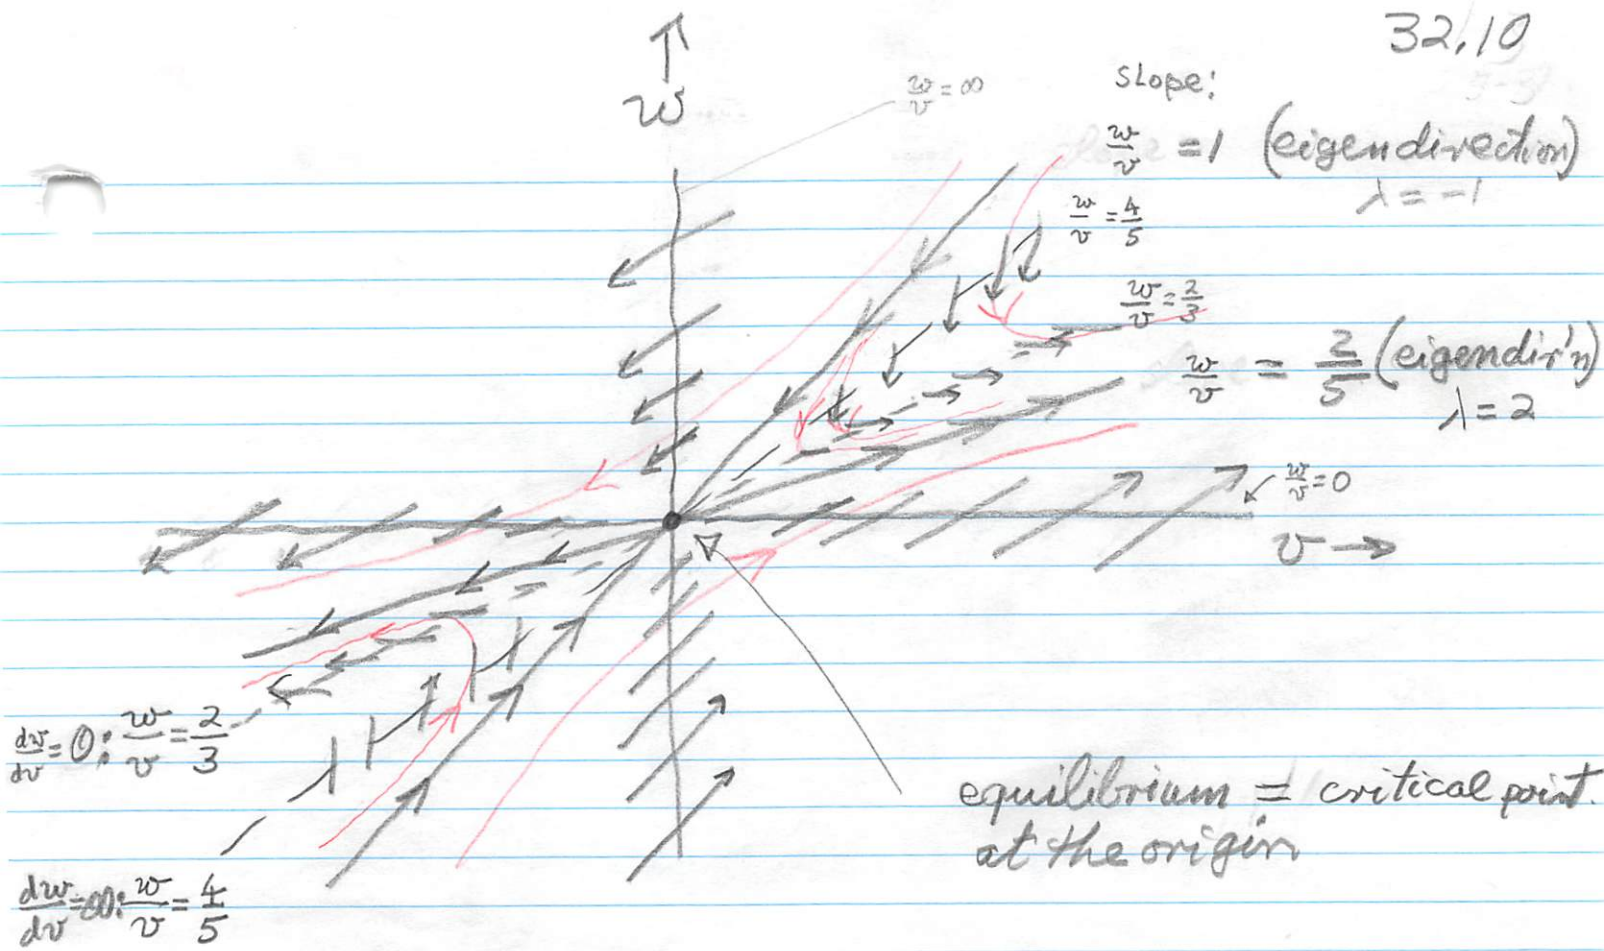 32.10
w
w/v = ∞
slope:
w/v = 1 (eigendirection)
λ = -1
w/v = 4/5
w/v = 2/3
w/v = 2/5 (eigendir'n)
λ = 2
w/v = 0
v →
dw/dv = 0: w/v = 2/3
equilibrium = critical point.
at the origin
dw/dv = ∞: w/v = 4/5